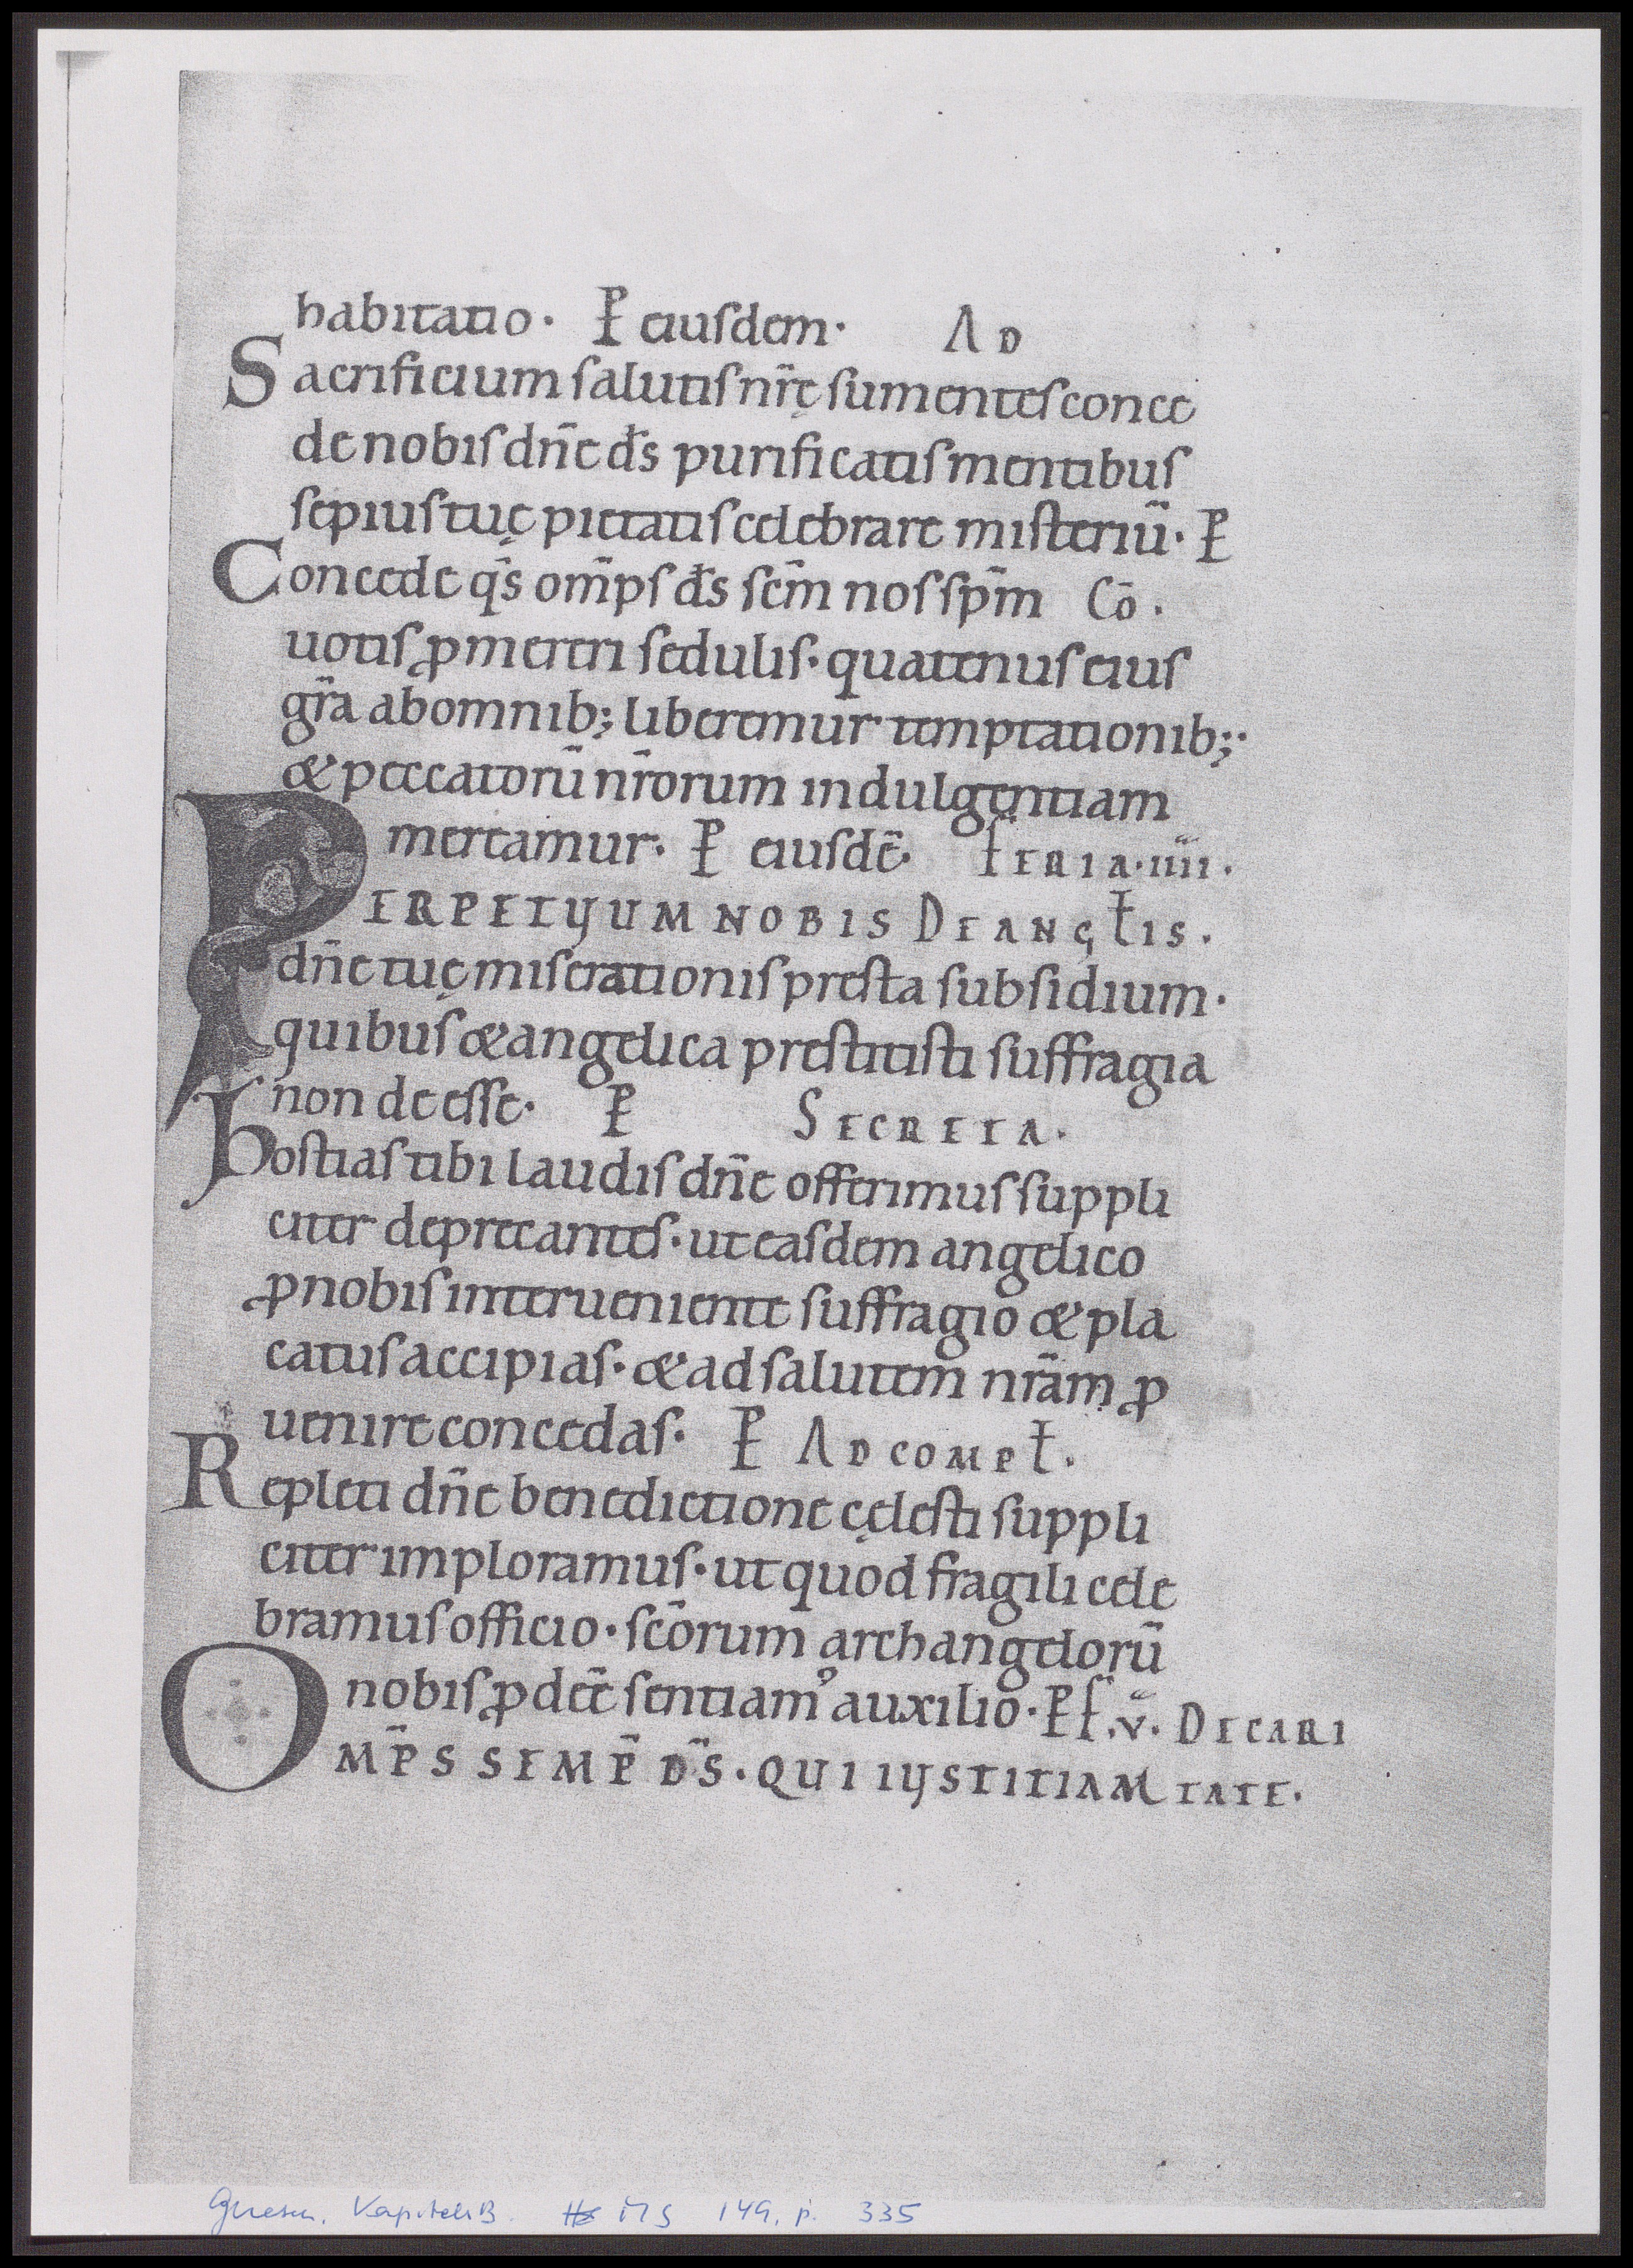 habitatio. P̵ eiusdem. AD
Sacrificium salutis nr̄ę sumentes conce
de nobis dn̄e d̄s purificatis mentibus
sepius tuę pietatis celebrare misteriū. P̵
Concede q̄s om̄ps d̄s sc̄m nos sp̄m Cō.
uotis ꝓmereri sedulis. quatenus eius
gr̄a ab omnib; liberemur temptationib;.
& peccatorū nr̄orum indulgentiam
mereamur. P̵ eiusdē. FERIA. IIII.
PERPETUUM NOBIS DE ANGEŁIS.
dn̄e tuę miserationis presta subsidium.
quibus & angelica prestitisti suffragia
non deesse. P̵ SECRETA.
hostias tibi laudis dn̄e offerimus suppli
citer deprecantes. ut easdem angelico
ꝓ nobis interueniente suffragio & pla
catus accipias. & ad salutem nr̄am ꝓ
uenire concedas. P̵ AD COMPŁ.
Repleti dn̄e benedictione cęlesti suppli
citer imploramus. ut quod fragili cele
bramus officio. sc̄orum archangelorū
nobis ꝓdeē sentiamꝰ auxilio. P̵ F̄. V̄. DE CARI
OMP̄S SEMP̄ D̄S. QUI IUSTITIAM TATE.
Gnesen. KapitelsB. Hs MS 149, p. 335